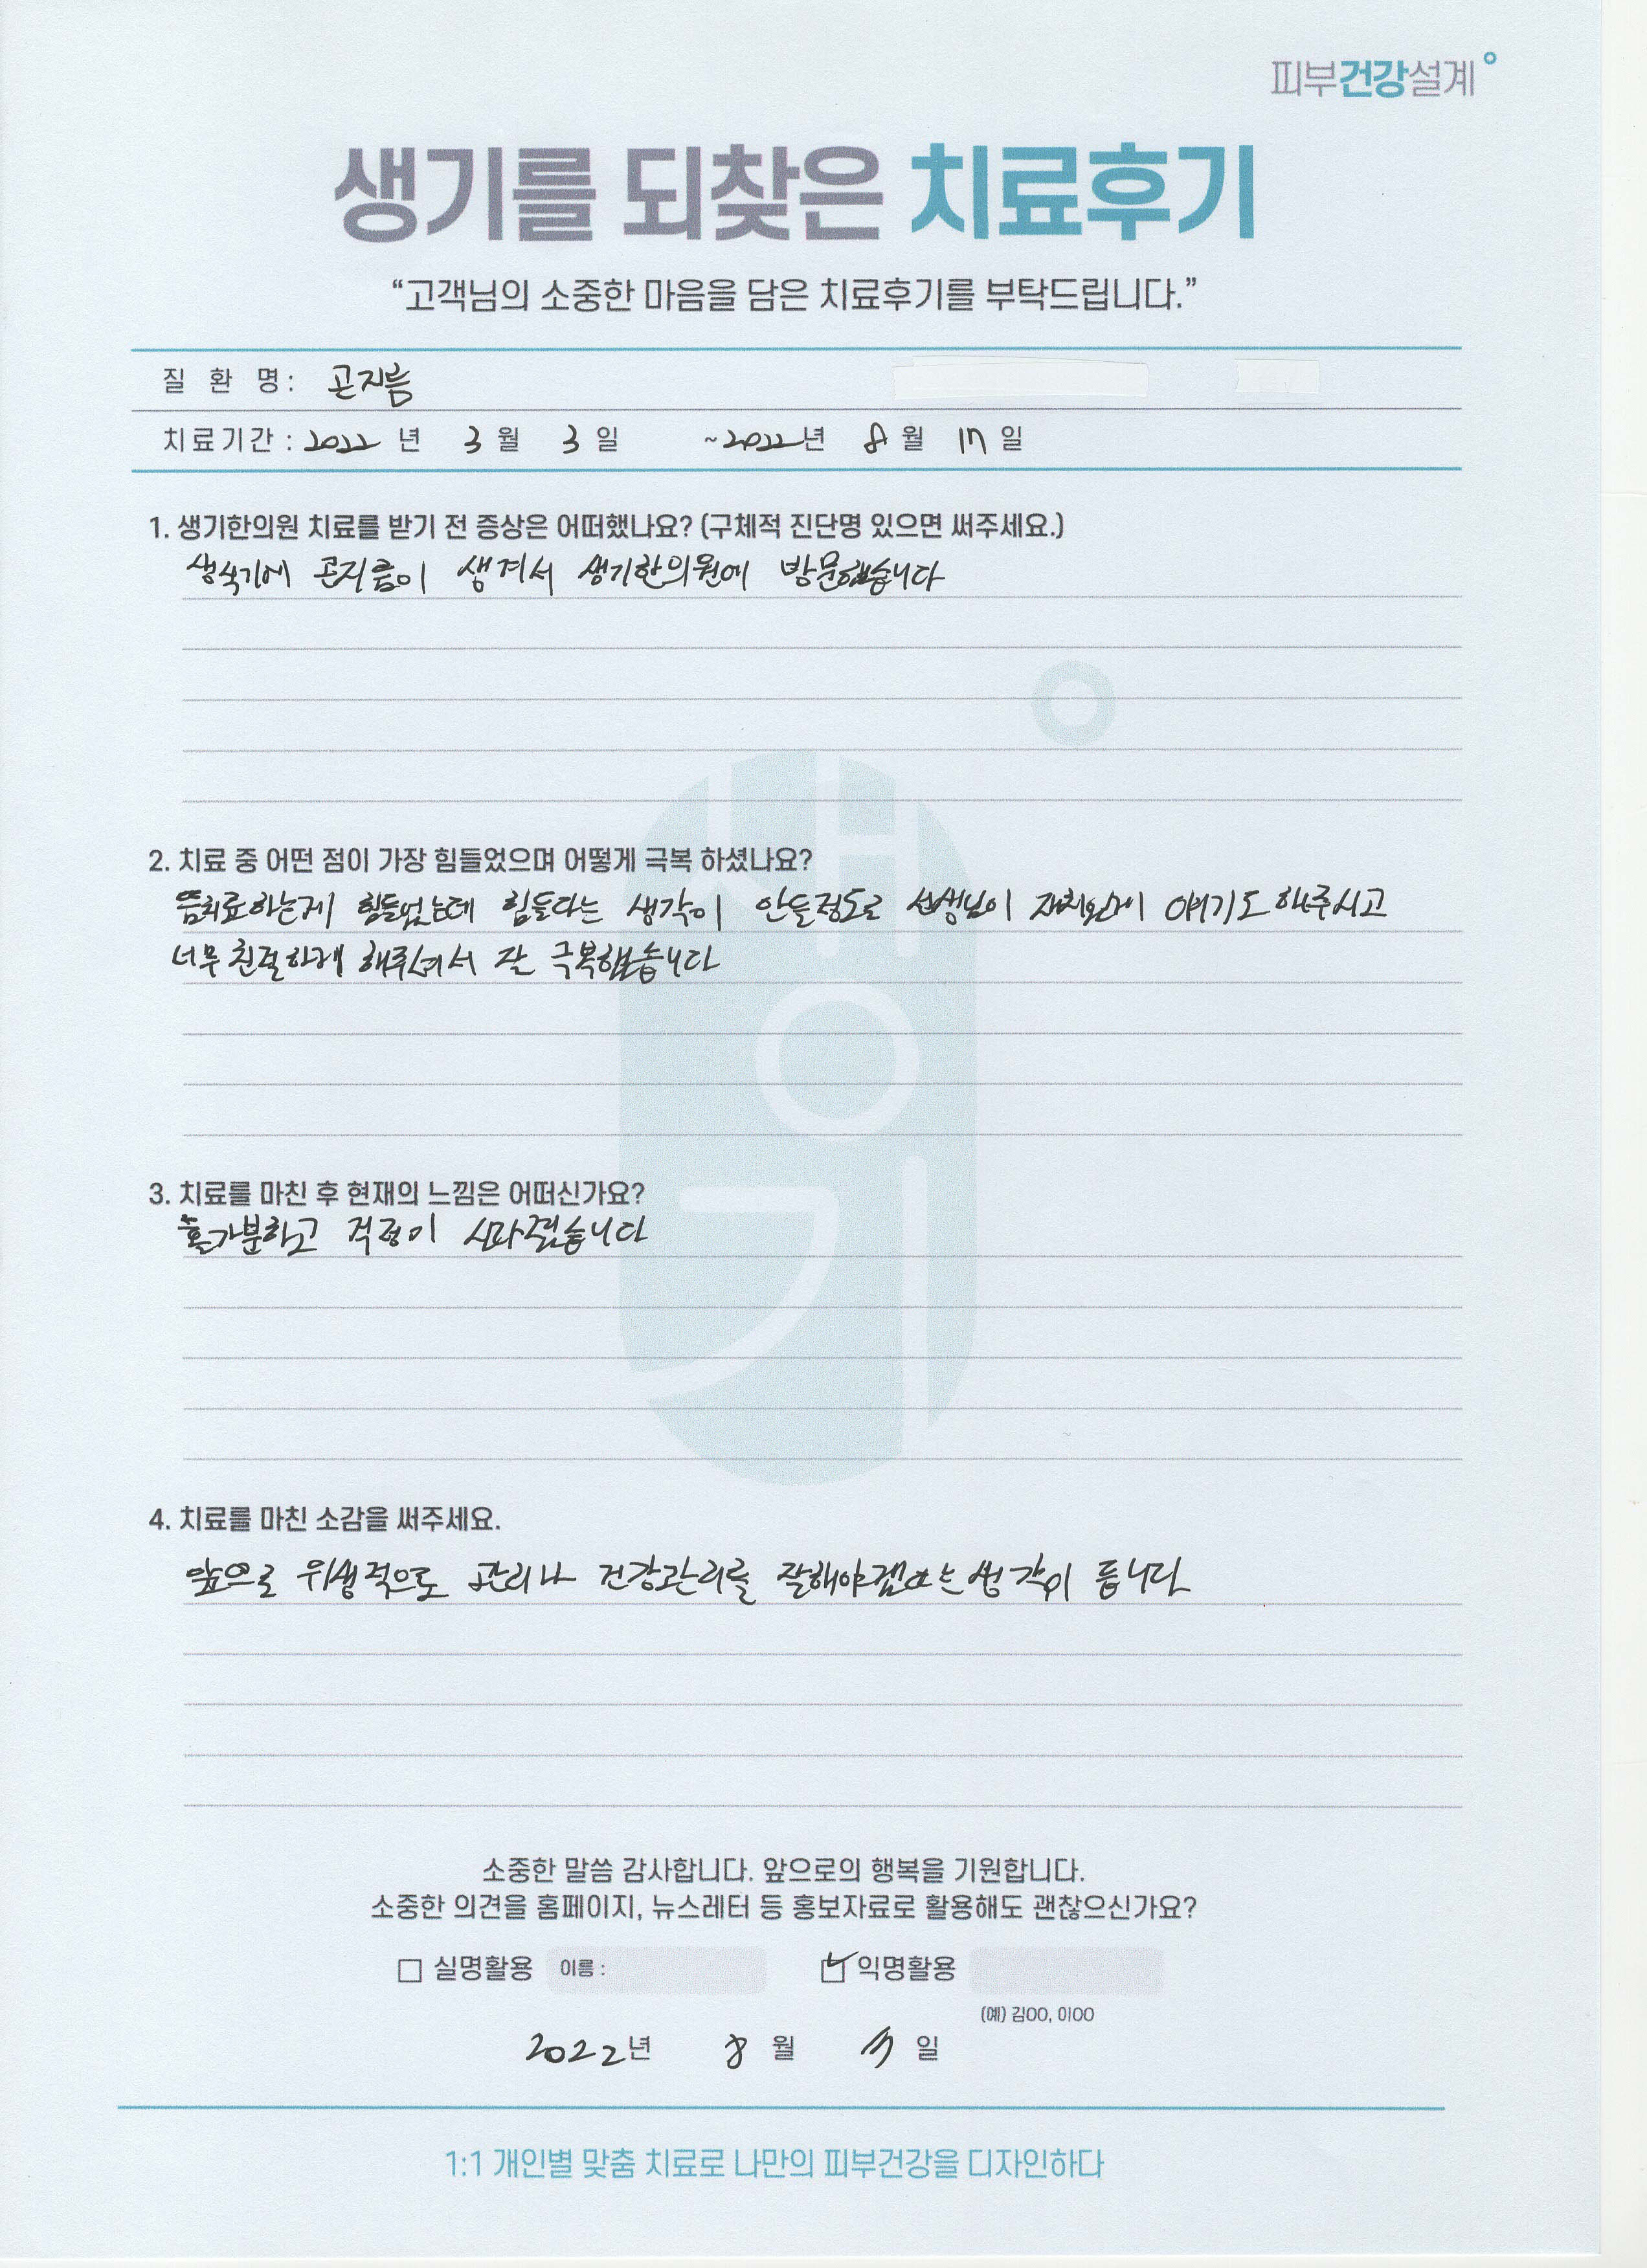 피부건강설계
생기를 되찾은 치료후기
“고객님의 소중한 마음을 담은 치료후기를 부탁드립니다.”
질 환 명: 곤지름
치료기간 : 2022 년 3 월 3 일 ~2022년 8 월 17 일
1. 생기한의원 치료를 받기 전 증상은 어떠했나요? (구체적 진단명 있으면 써주세요.)
생식기에 곤지름이 생겨서 생기한의원에 방문했습니다
2. 치료 중 어떤 점이 가장 힘들었으며 어떻게 극복 하셨나요?
뜸치료하는게 힘들었는데 힘들다는 생각이 안들정도로 선생님이 재치있게 얘기도 해주시고
너무 친절하게 해주셔서 잘 극복했습니다
3. 치료를 마친 후 현재의 느낌은 어떠신가요?
홀가분하고 걱정이 사라졌습니다
4. 치료를 마친 소감을 써주세요.
앞으로 위생적으로 관리나 건강관리를 잘해야겠다는 생각이 듭니다
소중한 말씀 감사합니다. 앞으로의 행복을 기원합니다.
소중한 의견을 홈페이지, 뉴스레터 등 홍보자료로 활용해도 괜찮으신가요?
실명활용 이름 : 익명활용
(예) 김OO, 이OO
2022년 8 월 일
1:1 개인별 맞춤 치료로 나만의 피부건강을 디자인하다
생기